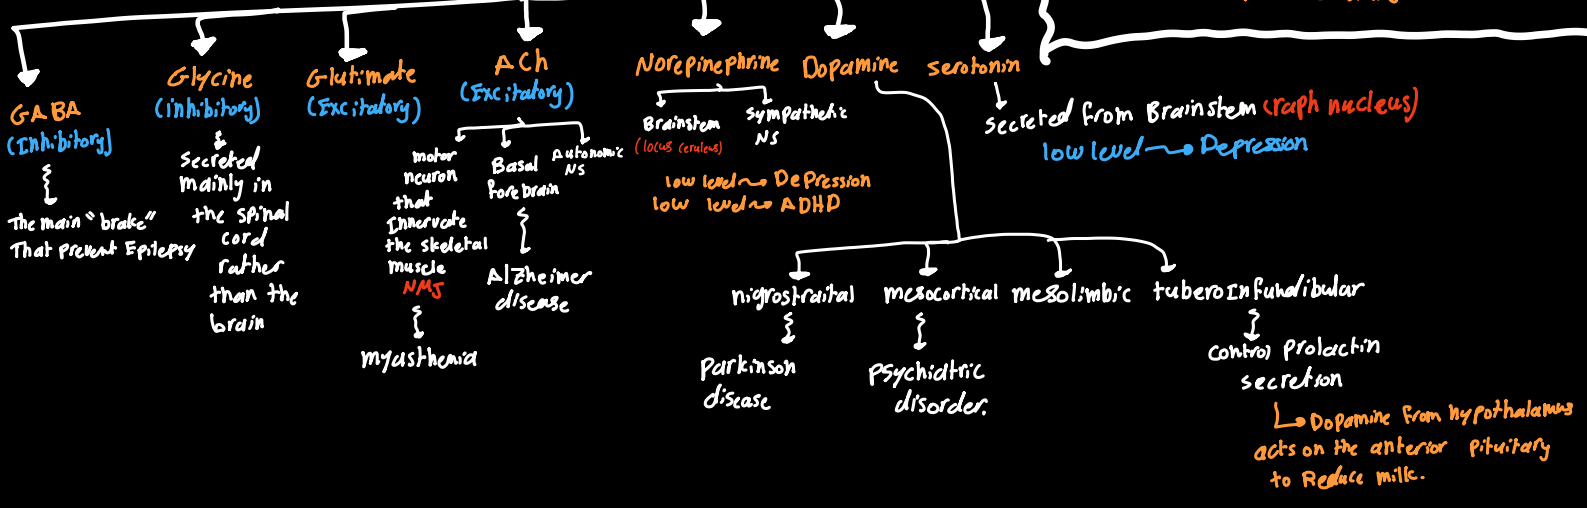 GABA
(Inhibitory)
The main "brake"
That prevent Epilepsy
Glycine
(Inhibitory)
Secreted
mainly in
the spinal
cord
rather
than the
brain
Glutimate
(Excitatory)
ACh
(Excitatory)
motor
neuron
that
Innervate
the skeletal
muscle
NMJ
myasthemia
Basal
forebrain
Alzheimer
disease
Autonomic
NS
Norepinephrine
Brainstem
(locus ceruleus)
Sympathetic
NS
low level → Depression
low level → ADHD
Dopamine
nigrostraital
Parkinson
disease
mesocortical
Psychiatric
disorder.
mesolimbic
tuberoInfundibular
control prolactin
secretion
→ Dopamine from hypothalamus
acts on the anterior pituitary
to Reduce milk.
serotonin
Secreted from Brainstem (raph nucleus)
low level → Depression